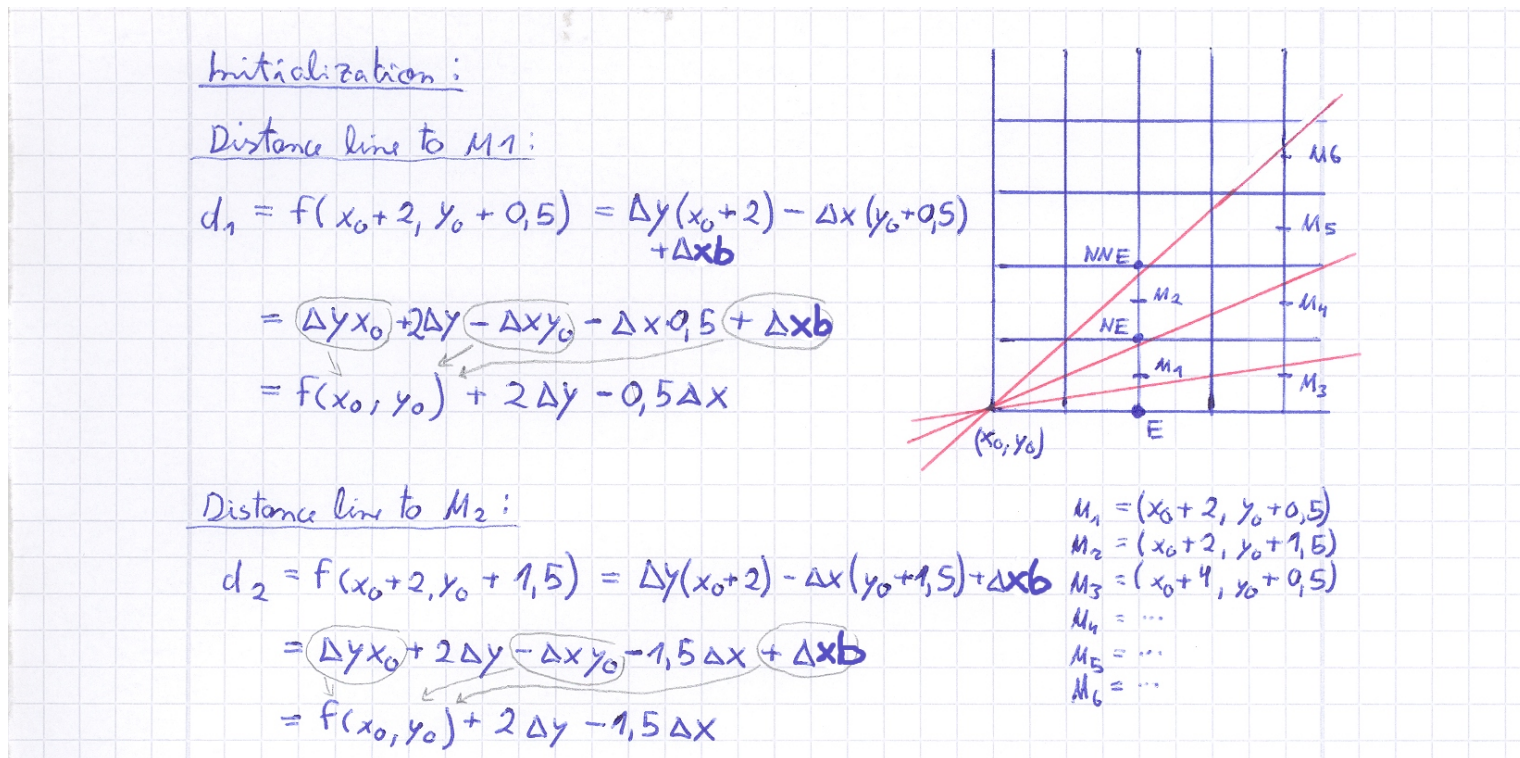 Initialization:
Distance line to M1:
d₁ = f(x₀+2, y₀+0,5) = Δy(x₀+2) - Δx(y₀+0,5)
+Δxb
= Δyx₀ +2Δy - Δxy₀ - Δx·0,5 + Δxb
= f(x₀, y₀) + 2Δy - 0,5Δx
Distance line to M₂:
d₂ = f(x₀+2, y₀ + 1,5) = Δy(x₀+2) - Δx(y₀+1,5)+Δxb
= Δyx₀ + 2Δy - Δxy₀ - 1,5Δx + Δxb
= f(x₀, y₀) + 2Δy - 1,5Δx
M6
M5
NNE
M₂
M4
NE
M₁
M3
E
(x₀, y₀)
M₁ = (x₀+2, y₀+0,5)
M₂ = (x₀+2, y₀+1,5)
M₃ = (x₀+4, y₀+0,5)
M₄ = ...
M₅ = ...
M₆ = ...